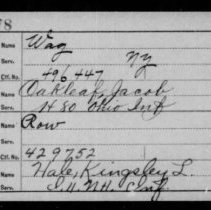 78
Name Way
Serv. NY
Ctf. No. 496447
Name Oakleaf, Jacob
Serv. H 80 Ohio Inf
Name Row
Serv.
Ctf. No. 429752
Name Hale, Kingsley L.
Serv. H. N.H. Inf